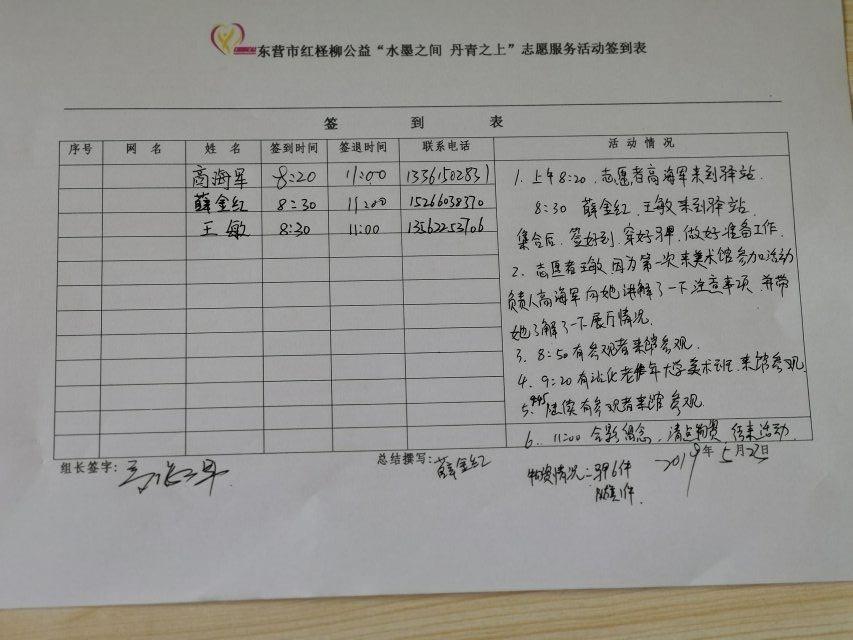 东营市红柽柳公益“水墨之间 丹青之上”志愿服务活动签到表
签 到 表
序号 网 名 姓 名 签到时间 签退时间 联系电话 活动情况
高海军 8:20 11:00 13361502831
薛金红 8:30 11:00 15266038370
王敏 8:30 11:00 13562253706
1. 上午8:20，志愿者高海军来到驿站.
8:30 薛金红、王敏来到驿站.
集合后，签好到，穿好马甲，做好准备工作.
2、志愿者王敏因为第一次来美术馆参加活动
负责人高海军向她讲解了一下注意事项，并带
她了解了一下展厅情况.
3、8:50有参观者来馆参观.
4、9:20有沾化老年大学美术班来馆参观
5、9:45陆续有参观者来馆参观.
6、11:00 合影留念，清点物资，结束活动.
组长签字：高海军
总结撰写：薛金红
物资情况：马甲6件
队旗1件
2019年5月23日